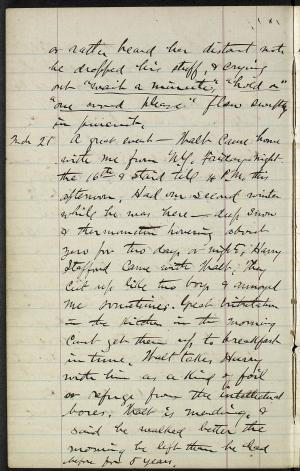 or rather heard her distant note
he dropped his stuff, & crying
out "wait a minute," "hold on"
"one word please" flew swiftly
in pursuit.
Mch 21 A great event — Walt came home
with me from N.Y. Friday night
the 16th & staid till 4 P.M. this
afternoon. Had our second winter
while he was here — deep snow
& thermometer hovering about
zero for two days or nights, Harry
Stafford came with Walt; They
cut up like two boys & annoyed
me sometimes. Great tribulation
in the kitchen in the morning
Cant get them up to breakfast
in time. Walt takes Harry
with him as a kind of foil
or refuge from the intellectual
bores. Walt is mending, &
said he walked better the
morning he left than he had
before for 5 years.